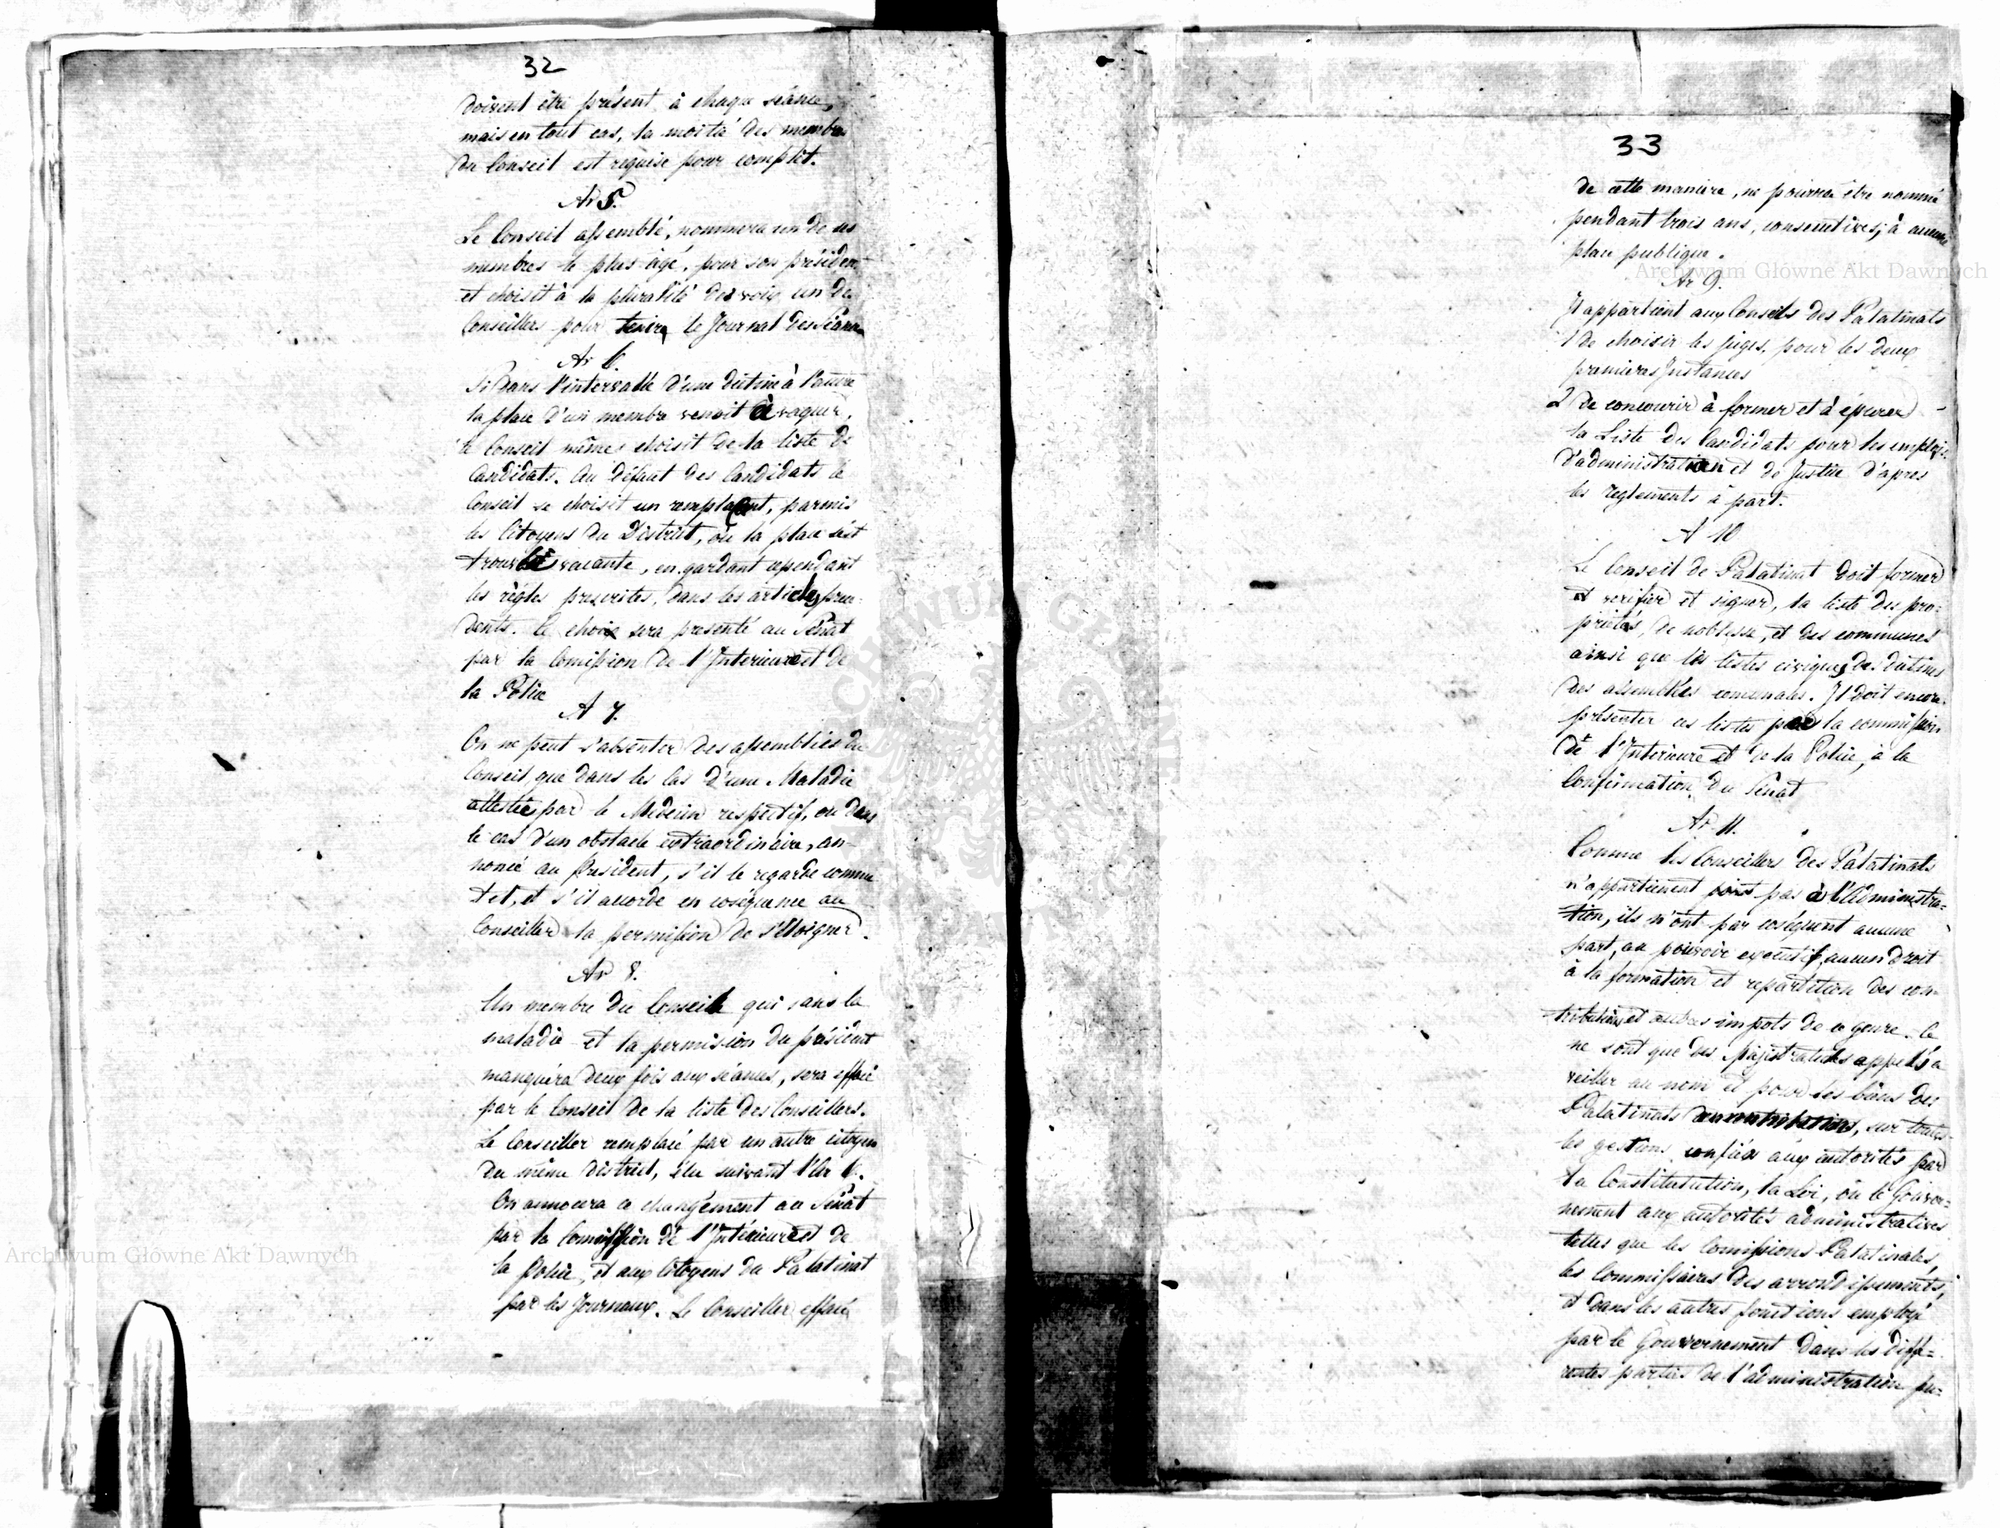 32
doivent être présent à chaque séance,
mais en tout cas, la moitié des membres
du Conseil est requise pour complèt.
Ar 5.
Le Conseil assemblé, nommera un de ses
membres le plus agé, pour son président
et choisit à la pluralité des voix un des
Conseillers pour tenir le Journal des séances
Ar 6.
Si dans l'intervalle d'une diétine à l'autre
la place d'un membre venoit à vaquer,
le Conseil même choisit de la liste de
Candidats. Au défaut des Candidats le
Conseil se choisit un remplaçant, parmis
les Citoyens du District, où la place s'est
trouvée vacante, en gardant cependant
les règles prescrites, dans les articles précé-
dents. Ce choix sera presenté au Sénat
par la Comission de l'Interieure et de
la Police
A 7.
On ne peut s'absenter des assemblées du
Conseil que dans les Cas d'une Maladie
attestée par le Médecin respectif, ou dans
le cas d'un obstacle extraordinaire, an-
noncé au Président, s'il le regarde comme
tel, et s'il accorde en coséquence au
Conseiller la permission de s'éloigner.
Ar 8.
Un membre du Conseil qui sans la
maladie et la permission du président
manquéra deux fois aux séances, sera effacé
par le Conseil de la liste des Conseillers.
Le Conseiller remplacé par un autre citoyen
du même district, élu suivant l'Ar 6.
On annoncera ce changement au Sénat
par la Comission de l'Intérieure et de
la Police, et aux Citoyens du Palatinat
par les Journaux. Le Conseiller effacé
33
de cette manière, ne pourra être nommé
pendant trois ans, consecutives, à aucune
place publique.
Ar 9.
Il appartient aux Conseils des Palatinats
1 de choisir les juges, pour les deux
premieres Instances
2 de concourir à former et à épurer
la Liste des Candidats pour les emplois
d'administration et de Justice d'apres
les reglements à part.
A 10
Le Conseil de Palatinat doit former
et verifier et signer, la liste des pro-
priétés, de noblesse, et des communes
ainsi que les listes civiques des diétines
des assemblées comunales. Il doit encore
présenter ces listes par la commission
de l'Interieure et de la Police, à la
Confirmation du Sénat
Ar 11.
Comme les Conseillers des Palatinats
n'appartiennent point pas à l'Administra-
tion, ils n'ont par coséquent aucune
part, au pouvoir executif, aucun droit
à la formation et repartition des con-
tributions et autres impots de ce genre. Ce
ne sont que des Magistratures appelés a
veiller au nom et pour les biens des
Palatinats, sur toutes
les gestions confiées aux autorités par
la Constitutution, la Loi, ou le Gouver-
nement aux autorités administratives
telles que les Comissions Palatinales,
les Commissaires des arrondissements,
et dans les autres fonctions employé
par le Gouvernement dans les diffé-
rentes parties de l'administration pu-
Archiwum Główne Akt Dawnych
Archiwum Główne Akt Dawnych